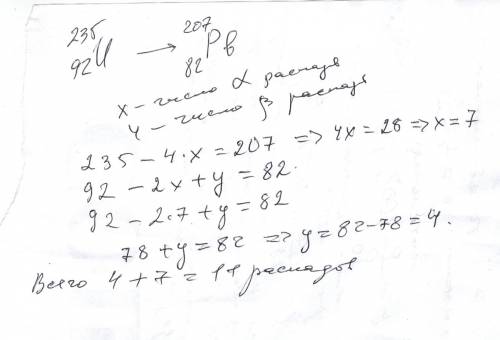 ²³⁵₉₂U → ²⁰⁷₈₂Pв
x - число α распада
y - число β распада
235 - 4·x = 207 => 4x = 28 => x = 7
92 - 2x + y = 82.
92 - 2·7 + y = 82
78 + y = 82 => y = 82-78 = 4.
Всего 4 + 7 = 11 распадов